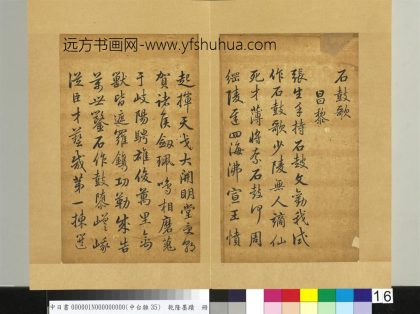 远方书画网--www.yfshuhua.com
石鼓歌
昌黎
張生手持石鼓文勸我試
作石鼓歌少陵無人謫仙
死才薄將奈石鼓何周
綱陵遲四海沸宣王憤
起揮天戈大開明堂受朝
賀諸侯劍珮鳴相磨蒐
于岐陽騁雄俊萬里禽
獸皆遮羅鐫功勒成告
萬世鑿石作鼓隳嵯峨
從臣才藝咸第一揀選
000001N000000000(中台雜35) 乾隆墨蹟 冊
16